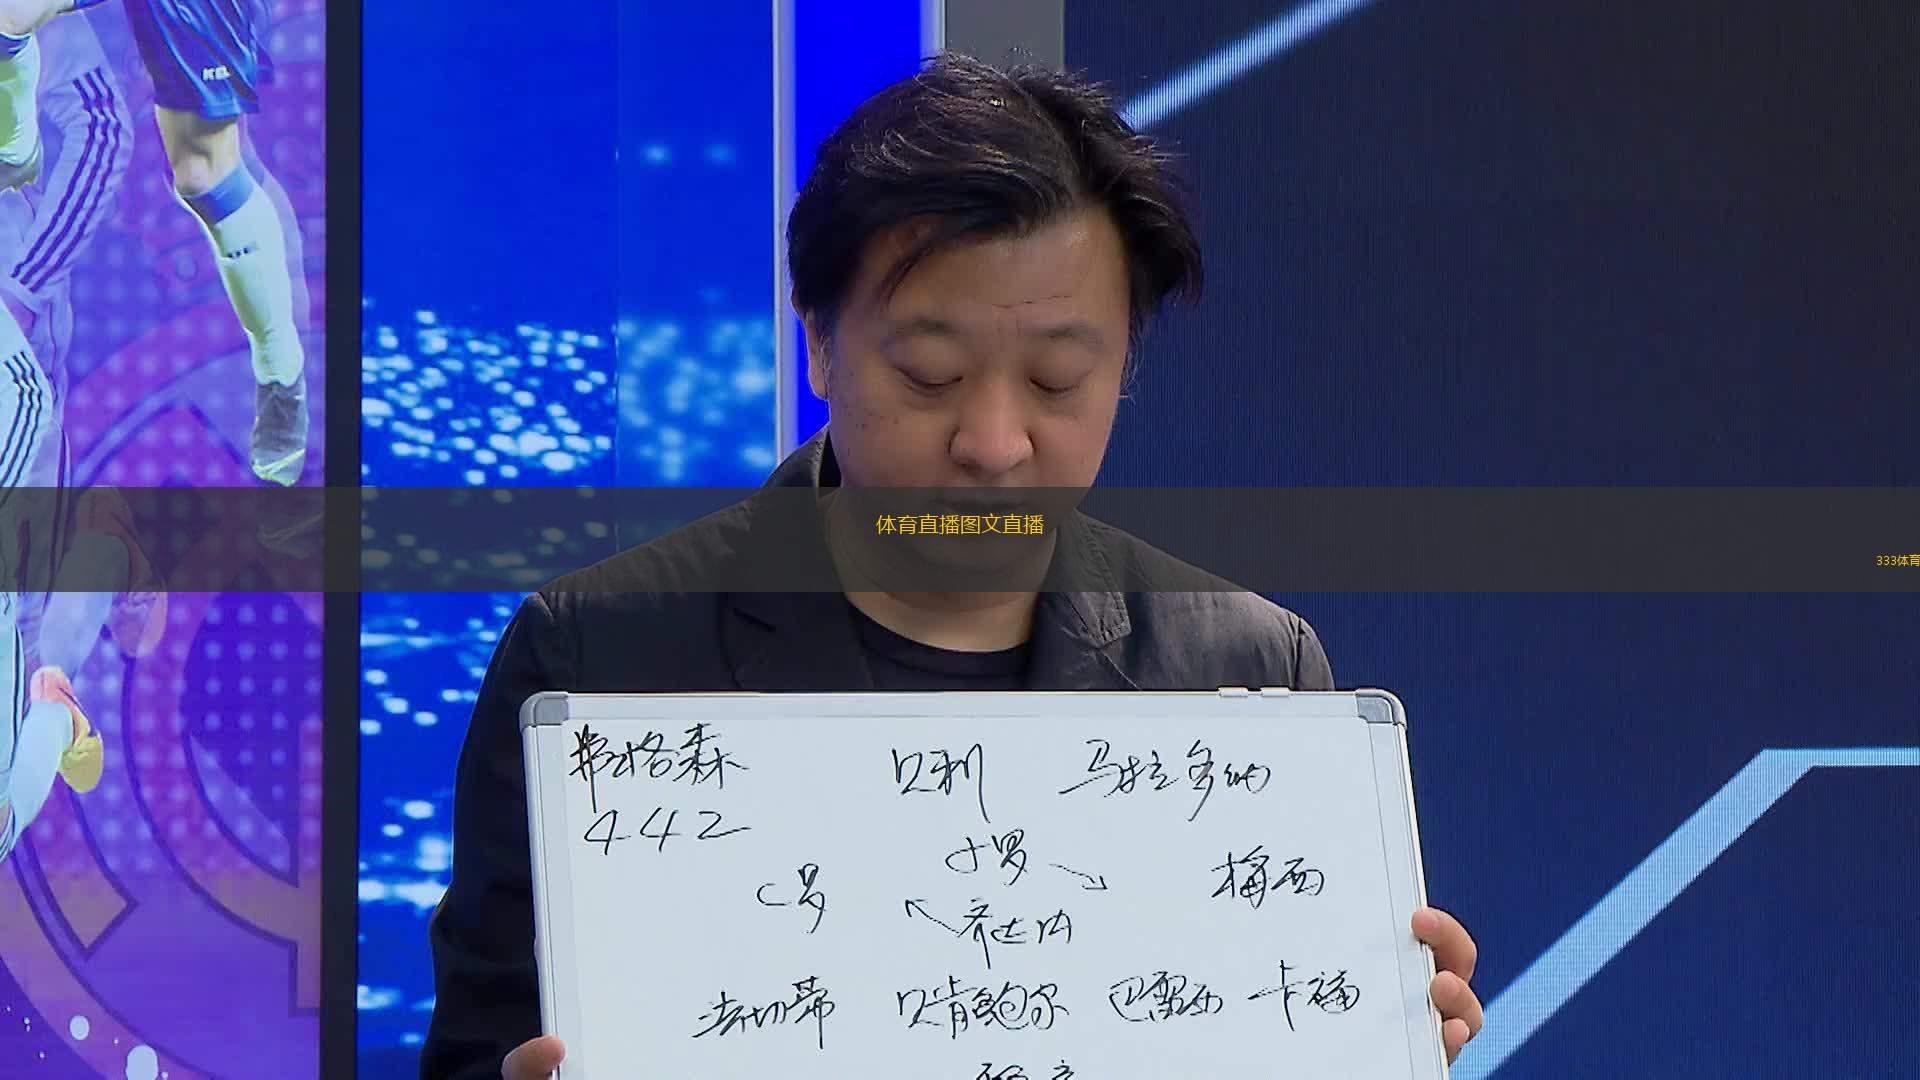 体育直播图文直播
333体育
弗格森 贝利 马拉多纳
442
小罗
C罗 梅西
齐达内
法切蒂 贝肯鲍尔 巴雷西 卡福